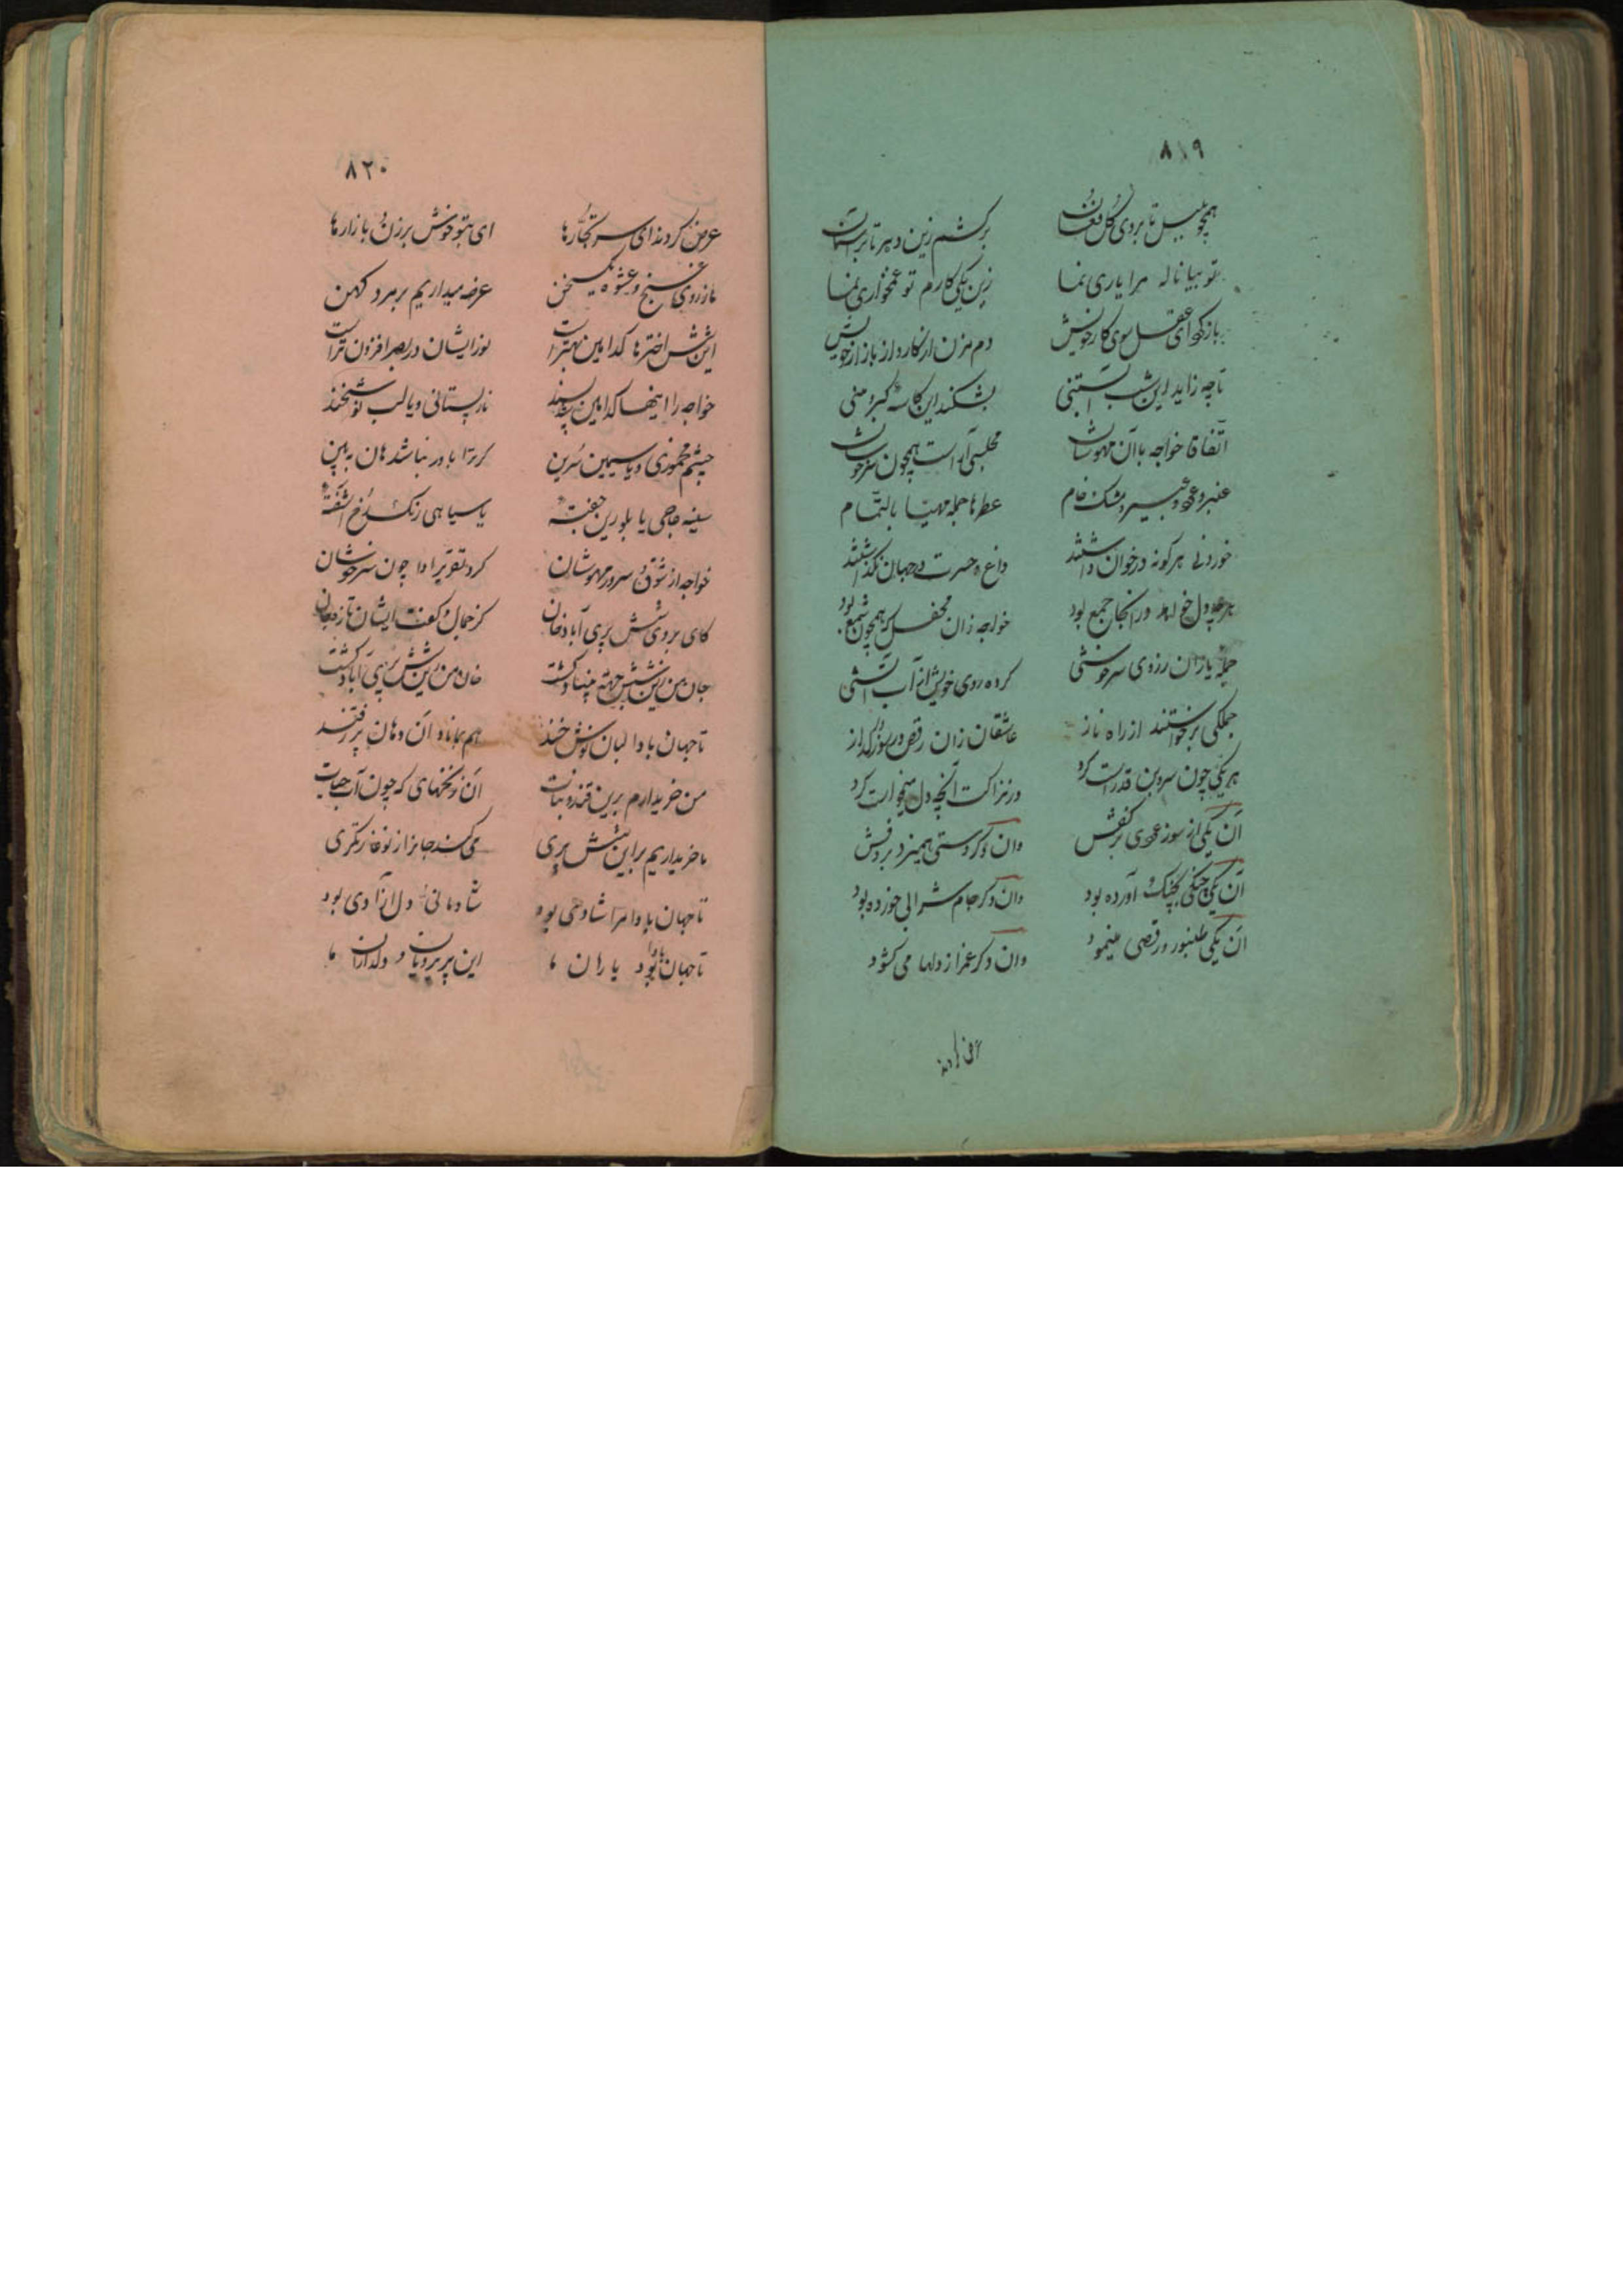 ۸۱۹
همچو بلبل تا بروی گل فغان
برکشم زین دهر تا برآستان
تو بیا ناله مرا یاری نما
زین یکی کارم تو غمخواری نما
بازگو ای عقل سوی کار خویش
دم مزن از کار و از بازار خویش
تا چه زاید این شب آبستنی
بشکند این کاسه کبر و منی
اتفاقا خواجه با آن مهوشان
مجلسی آراست همچون سرخوشان
عنبر و عود و عبیر و مشک خام
عطرها جمله مهیا بالتمام
خوردنی هرگونه در خوان داشتند
داغ حسرت در جهان نگذاشتند
هرچه دل خواهد در آنجا جمع بود
خواجه زان محفل که همچون شمع بود
جمله یاران ز روی سرخوشی
کرده روی خویش از آب آتشی
جملگی برخواستند از راه ناز
عاشقان زان رقص در سوز و گداز
هر یکی چون سروبن قد راست کرد
در نزاکت آنچه دل میخواست کرد
آن یکی از سوز عودی بر کفش
وان دگر دستی همیزد بر دفش
آن یکی چنگی بچنگ آورده بود
وان دگر جام شرابی خورده بود
آن یکی طنبور و رقصی مینمود
وان دگر غم از دلها می کشود
عرض کردند
۸۲۰
عرض کردند ای سر تجارها
ای بتو خوش برزن و بازارها
ما ز روی غنج و عشوه یک سخن
عرضه میداریم بر مرد کهن
این شش اخترها کدامین بهتر است
نور ایشان در بصر افزون تر است
خواجه را اینها کدامین شد پسند
نار پستانی و یا لب نوشخند
چشم مخموری و یا سیمین سرین
گر ترا باور نباشد هان ببین
سینه عاجی یا بلورین جفته
یا سیاهی زنگ رخ آشفته
خواجه از شوق و سرور مهوشان
کرد تقریر ادا چون سرخوشان
کای بروی شش پری آباد خان
کز جمال و گفت ایشان تازه جان
جان من زین شش جهة بنیاد گشت
خان من زین شش پری آباد گشت
تا جهان بادا لبان نوش خند
هم بماناد آن دهان پر ز قند
من خریدارم برین قند و نبات
آن زنخهای که چون آب حیات
ما خریداریم بر این شش پری
می کند جانرا ز نو غارتگری
تا جهان بادا مرا شادی بود
شادمانی دل از آزادی بود
تا جهان بادا بود یاران ما
این پریرویان و دلداران ما